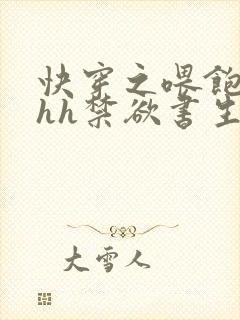 快穿之喂飽
hh禁欲書生
大雪人